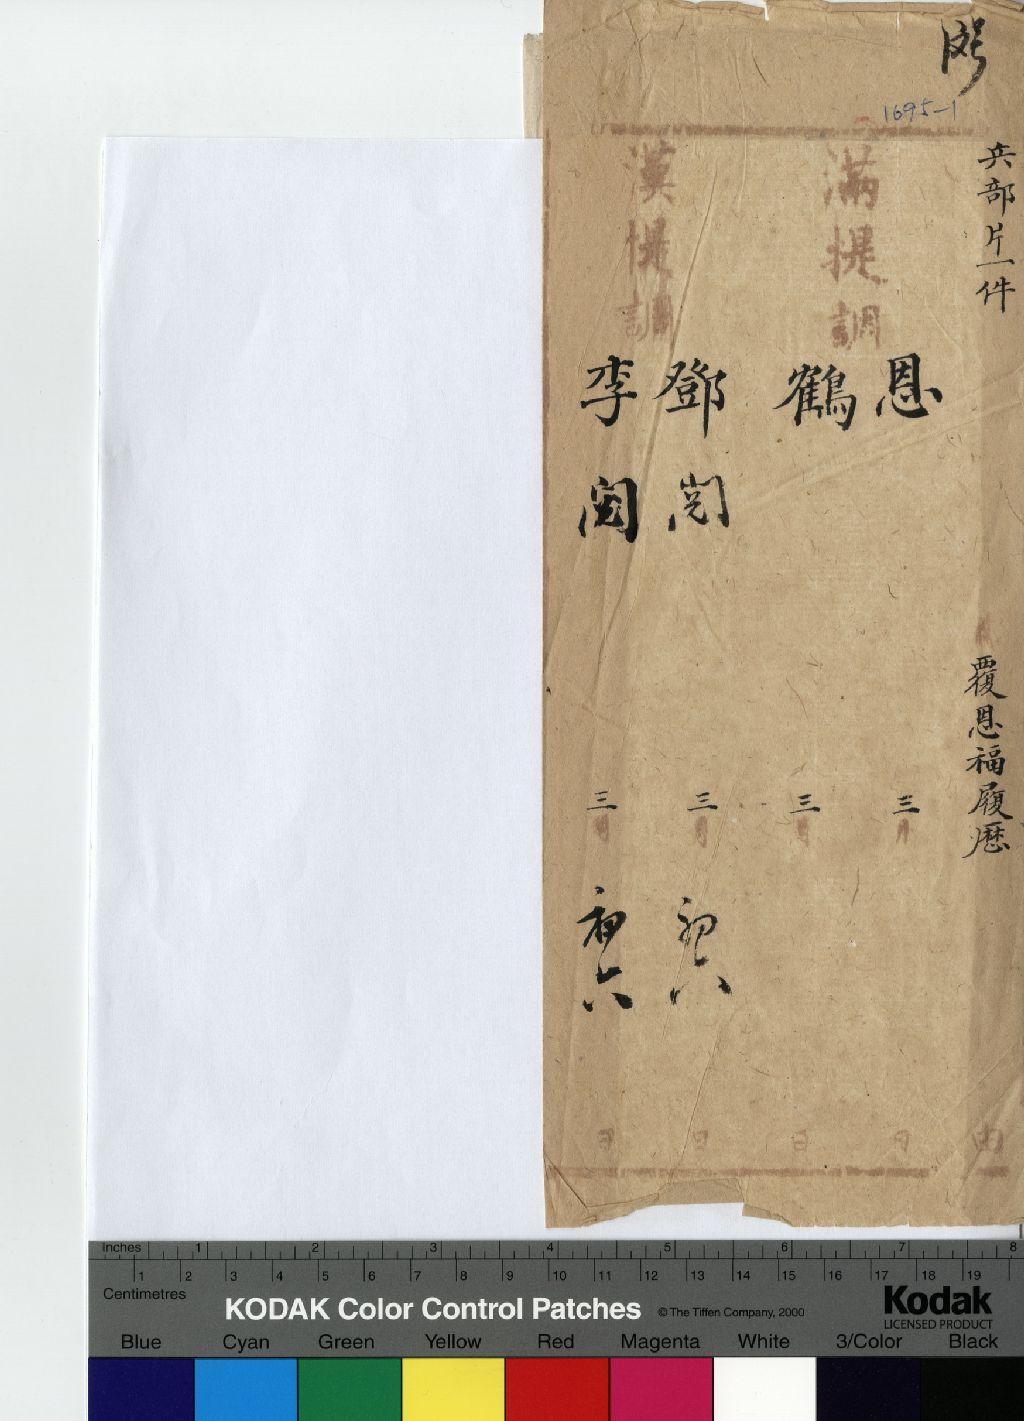 1695-1
兵部片一件
覆恩福履歷
由
滿提調
恩
三月
日
鶴
三月
日
漢提調
鄧 閱
三月初六
日
李 閱
三月初六
日
Inches 1 2 3 4 5 6 7 8
1 2 3 4 5 6 7 8 9 10 11 12 13 14 15 16 17 18 19
Centimetres
KODAK Color Control Patches © The Tiffen Company, 2000
Kodak
LICENSED PRODUCT
Blue Cyan Green Yellow Red Magenta White 3/Color Black